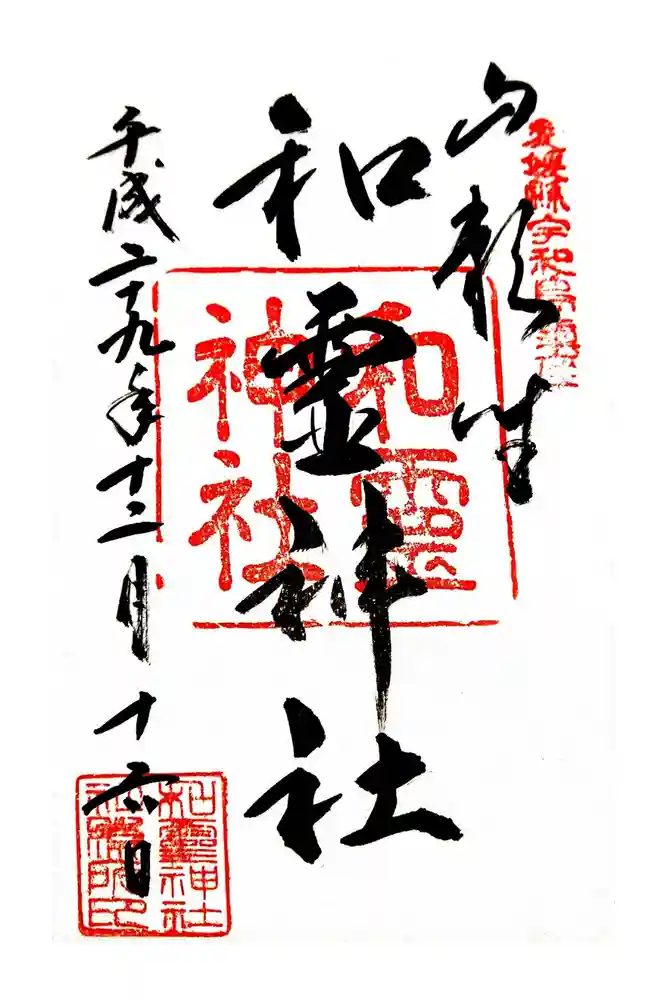 愛媛縣宇和島鎮座
和靈神社
和靈
神社
平成二十九年十二月十六日
和靈神社
社務所印